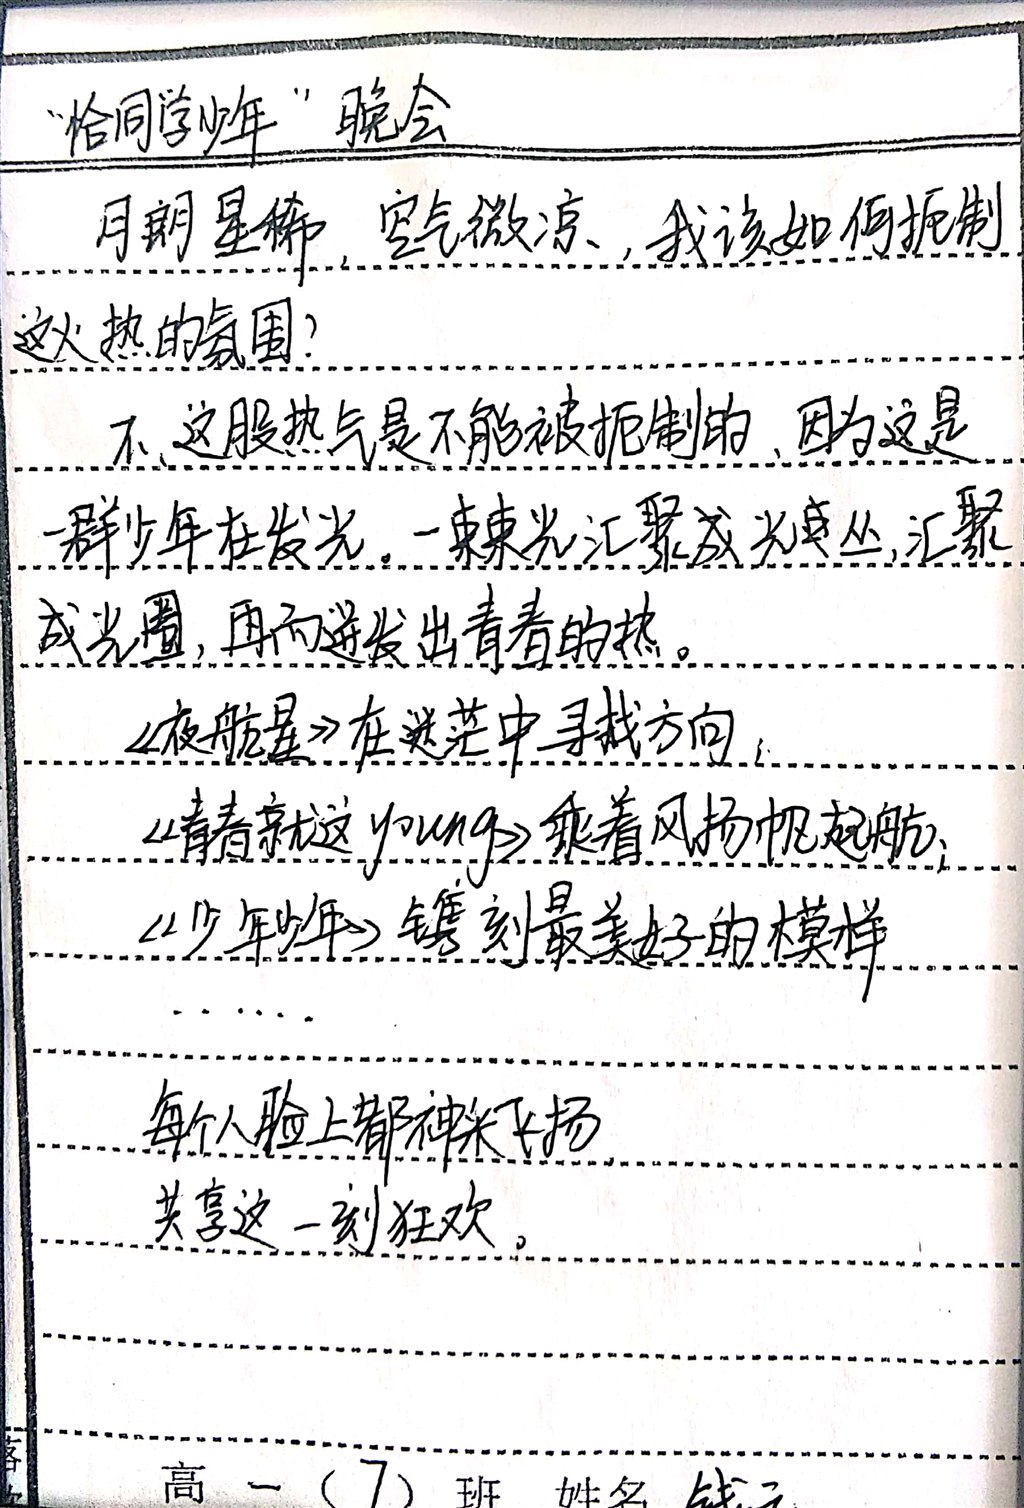 “恰同学少年”晚会
月明星稀，空气微凉，我该如何扼制
这火热的氛围？
不，这股热气是不能被扼制的，因为这是
一群少年在发光。一束束光汇聚成光丛，汇聚
成光圈，再而迸发出青春的热。
《夜航星》在迷茫中寻找方向；
《青春就这young》乘着风扬帆起航；
《少年少年》镌刻最美好的模样
……
每个人脸上都神采飞扬
共享这一刻狂欢。
高一（7）班 姓名 钱